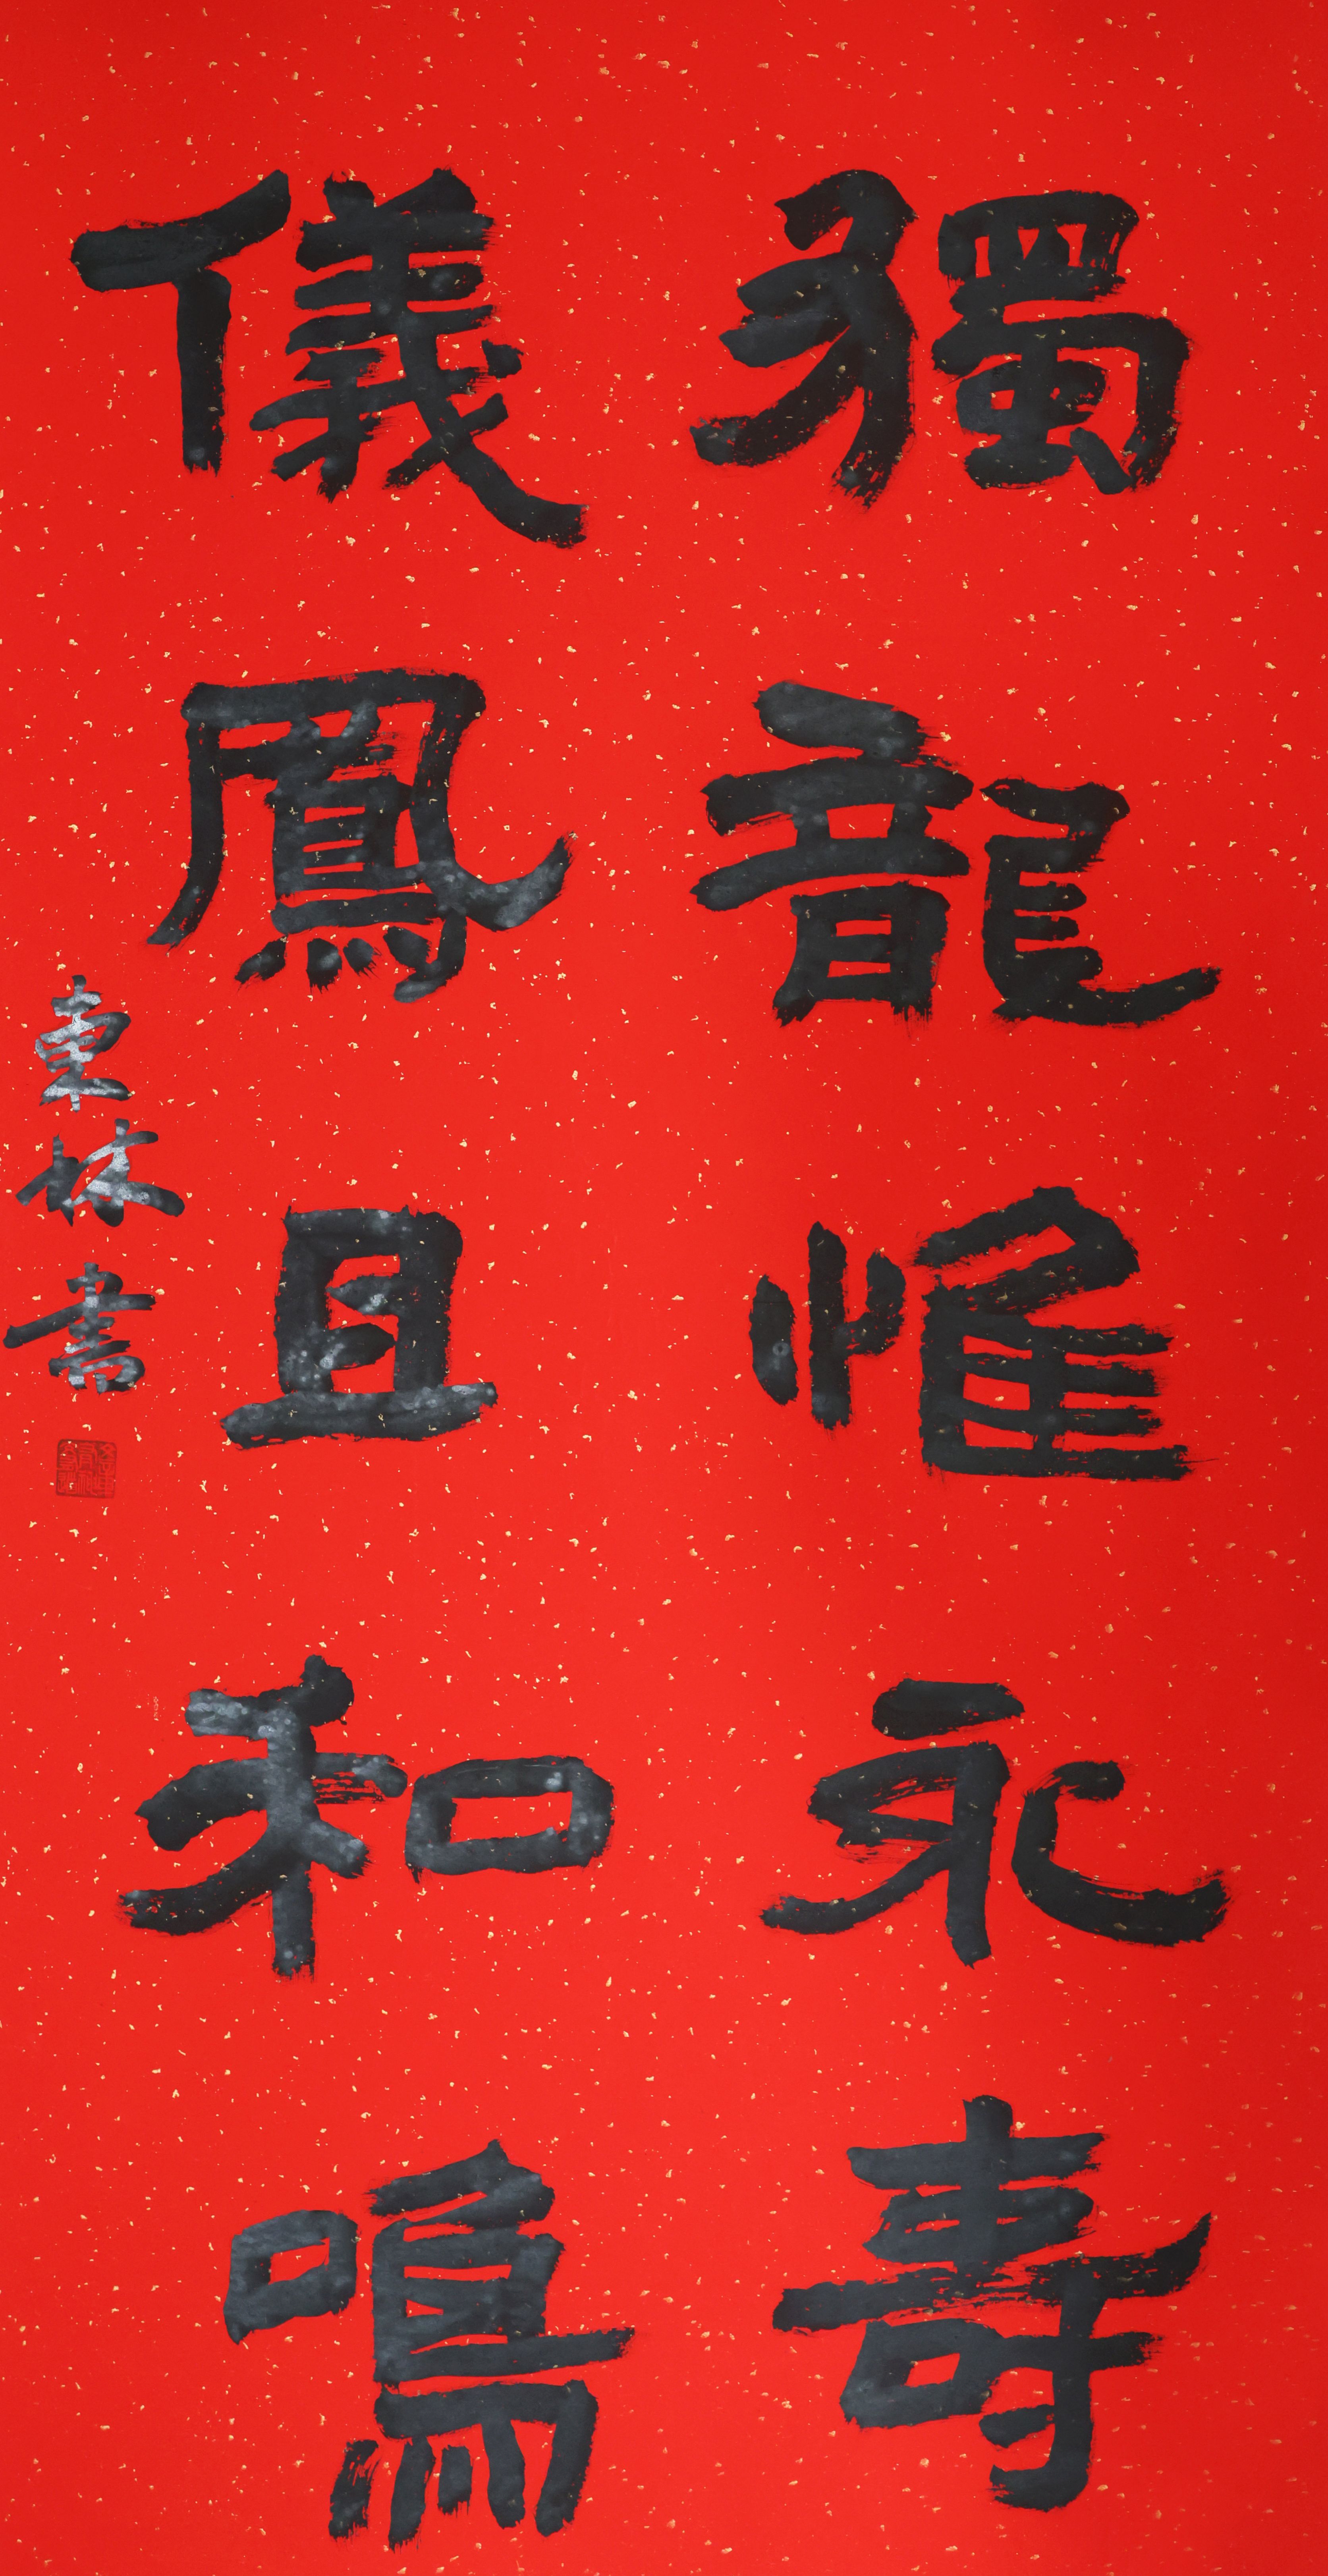 獨龍惟永壽
儀鳳且和鳴
東林書